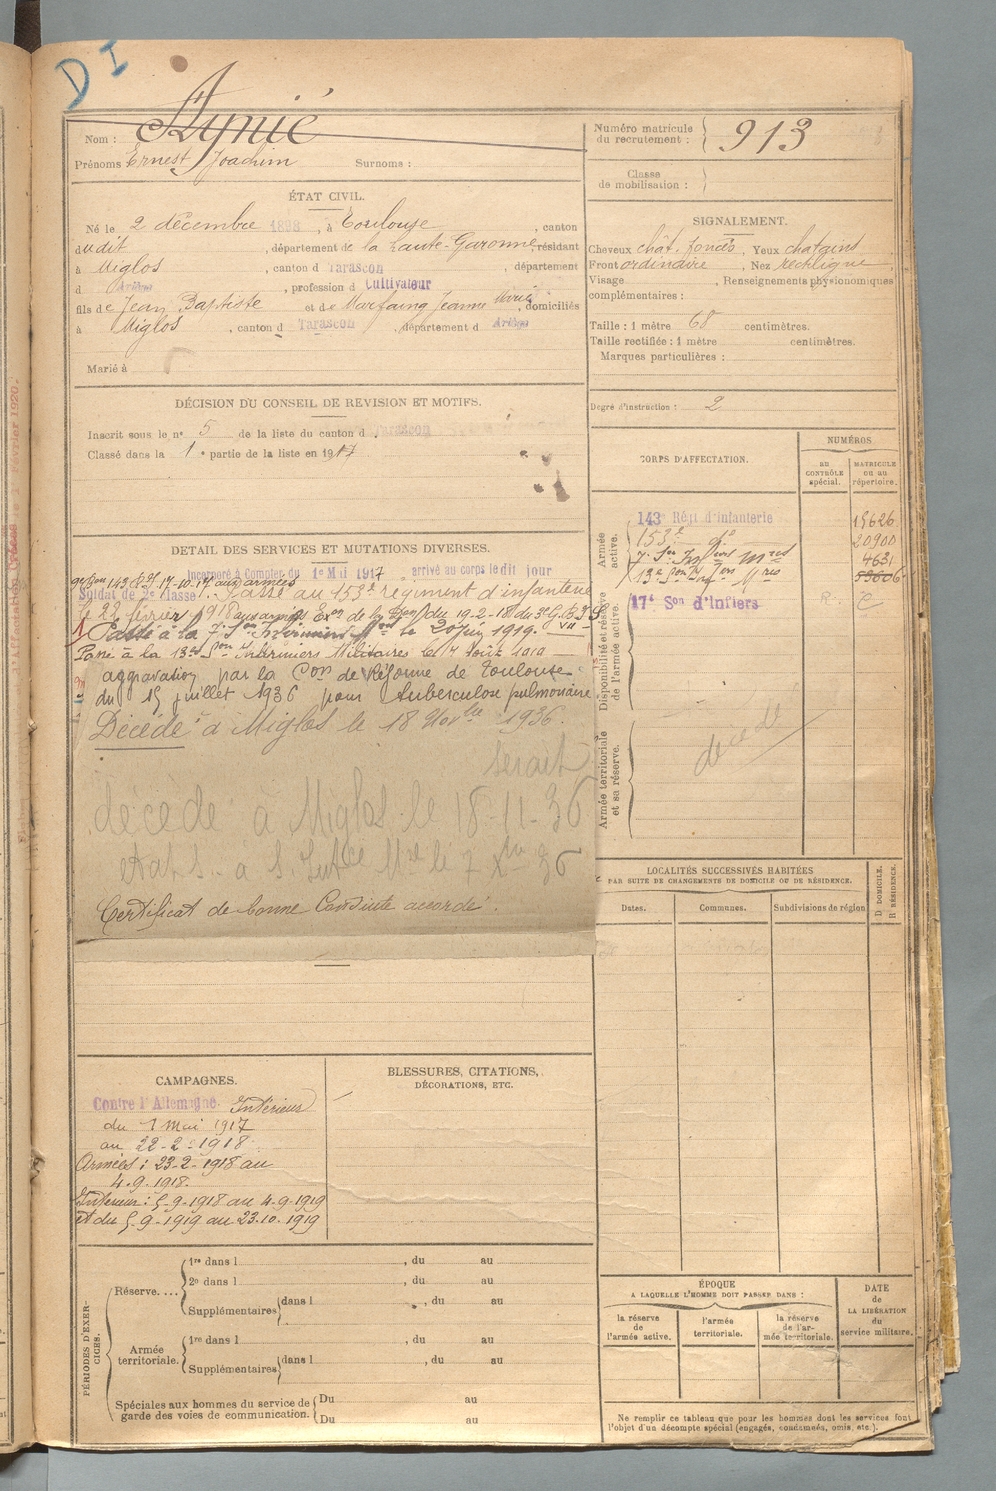 D I
Nom : Aynié
Prénoms Ernest Joachim Surnoms :
Numéro matricule
du recrutement : 913
Classe
de mobilisation :
ÉTAT CIVIL.
Né le 2 décembre 1898, à Toulouse, canton
dudit, département de la Haute-Garonne, résidant
à Miglos, canton d Tarascon, département
d Ariège, profession d Cultivateur
fils de Jean Baptiste et de Marfaing Jeanne Marie, domiciliés
à Miglos, canton d Tarascon, département d Ariège
Marié à
SIGNALEMENT.
Cheveux chat. foncés, Yeux chatains
Front ordinaire, Nez rectiligne
Visage , Renseignements physionomiques
complémentaires :
Taille : 1 mètre 68 centimètres.
Taille rectifiée : 1 mètre centimètres.
Marques particulières :
Degré d'instruction : 2
DÉCISION DU CONSEIL DE REVISION ET MOTIFS.
Inscrit sous le n° 5 de la liste du canton d Tarascon
Classé dans la 1e partie de la liste en 1917
DETAIL DES SERVICES ET MUTATIONS DIVERSES.
Incorporé à Compter du 1er Mai 1917 arrivé au corps ledit jour
Soldat de 2e classe. Passé au 153e régiment d'infanterie
le 22 février 1918 aux armées du 19-2-18 du
Passé à la 7e Son Infirmiers Mres le 20 juin 1919.
Passé à la 13e Son Infirmiers Militaires le 7 Août 1919
aggravation par la Con de Réforme de Toulouse
du 15 juillet 1936 pour tuberculose pulmonaire
Décédé à Miglos le 18 Novbre 1936.
serait
décédé à Miglos le 18-11-36
Certificat de bonne Conduite accordé.
CORPS D'AFFECTATION.
NUMÉROS
AU
CONTRÔLE
spécial.
MATRICULE
ou au
répertoire.
Armée
active.
143e Régt d'infanterie 15626
153e do 20900
7e Son Infiers Mres 4631
13e Son Infiers Mres 53606
Disponibilité et réserve
de l'armée active.
17e Son d'Infiers
Armée territoriale
et sa réserve.
décédé
LOCALITÉS SUCCESSIVES HABITÉES
PAR SUITE DE CHANGEMENTS DE DOMICILE OU DE RÉSIDENCE.
Dates. Communes. Subdivisions de région
D DOMICILE.
R RÉSIDENCE.
CAMPAGNES.
Contre l'Allemagne. Intérieur
du 1 Mai 1917
au 22-2-1918.
Armées : 23-2-1918 au
4-9-1918.
Intérieur : 5-9-1918 au 4-9-1919
et du 5-9-1919 au 23-10-1919
BLESSURES, CITATIONS,
DÉCORATIONS, ETC.
PÉRIODES D'EXER-
CICES.
Réserve....
1re dans l , du au
2e dans l , du au
Supplémentaires dans l , du au
Armée
territoriale.
1re dans l , du au
Supplémentaires dans l , du au
Spéciales aux hommes du service de
garde des voies de communication.
Du au
Du au
ÉPOQUE
A LAQUELLE L'HOMME DOIT PASSER DANS :
la réserve
de
l'armée active.
l'armée
territoriale.
la réserve
de l'ar-
mée territoriale.
DATE
de
LA LIBÉRATION
du
service militaire.
Ne remplir ce tableau que pour les hommes dont les services font
l'objet d'un décompte spécial (engagés, condamnés, omis, etc.).